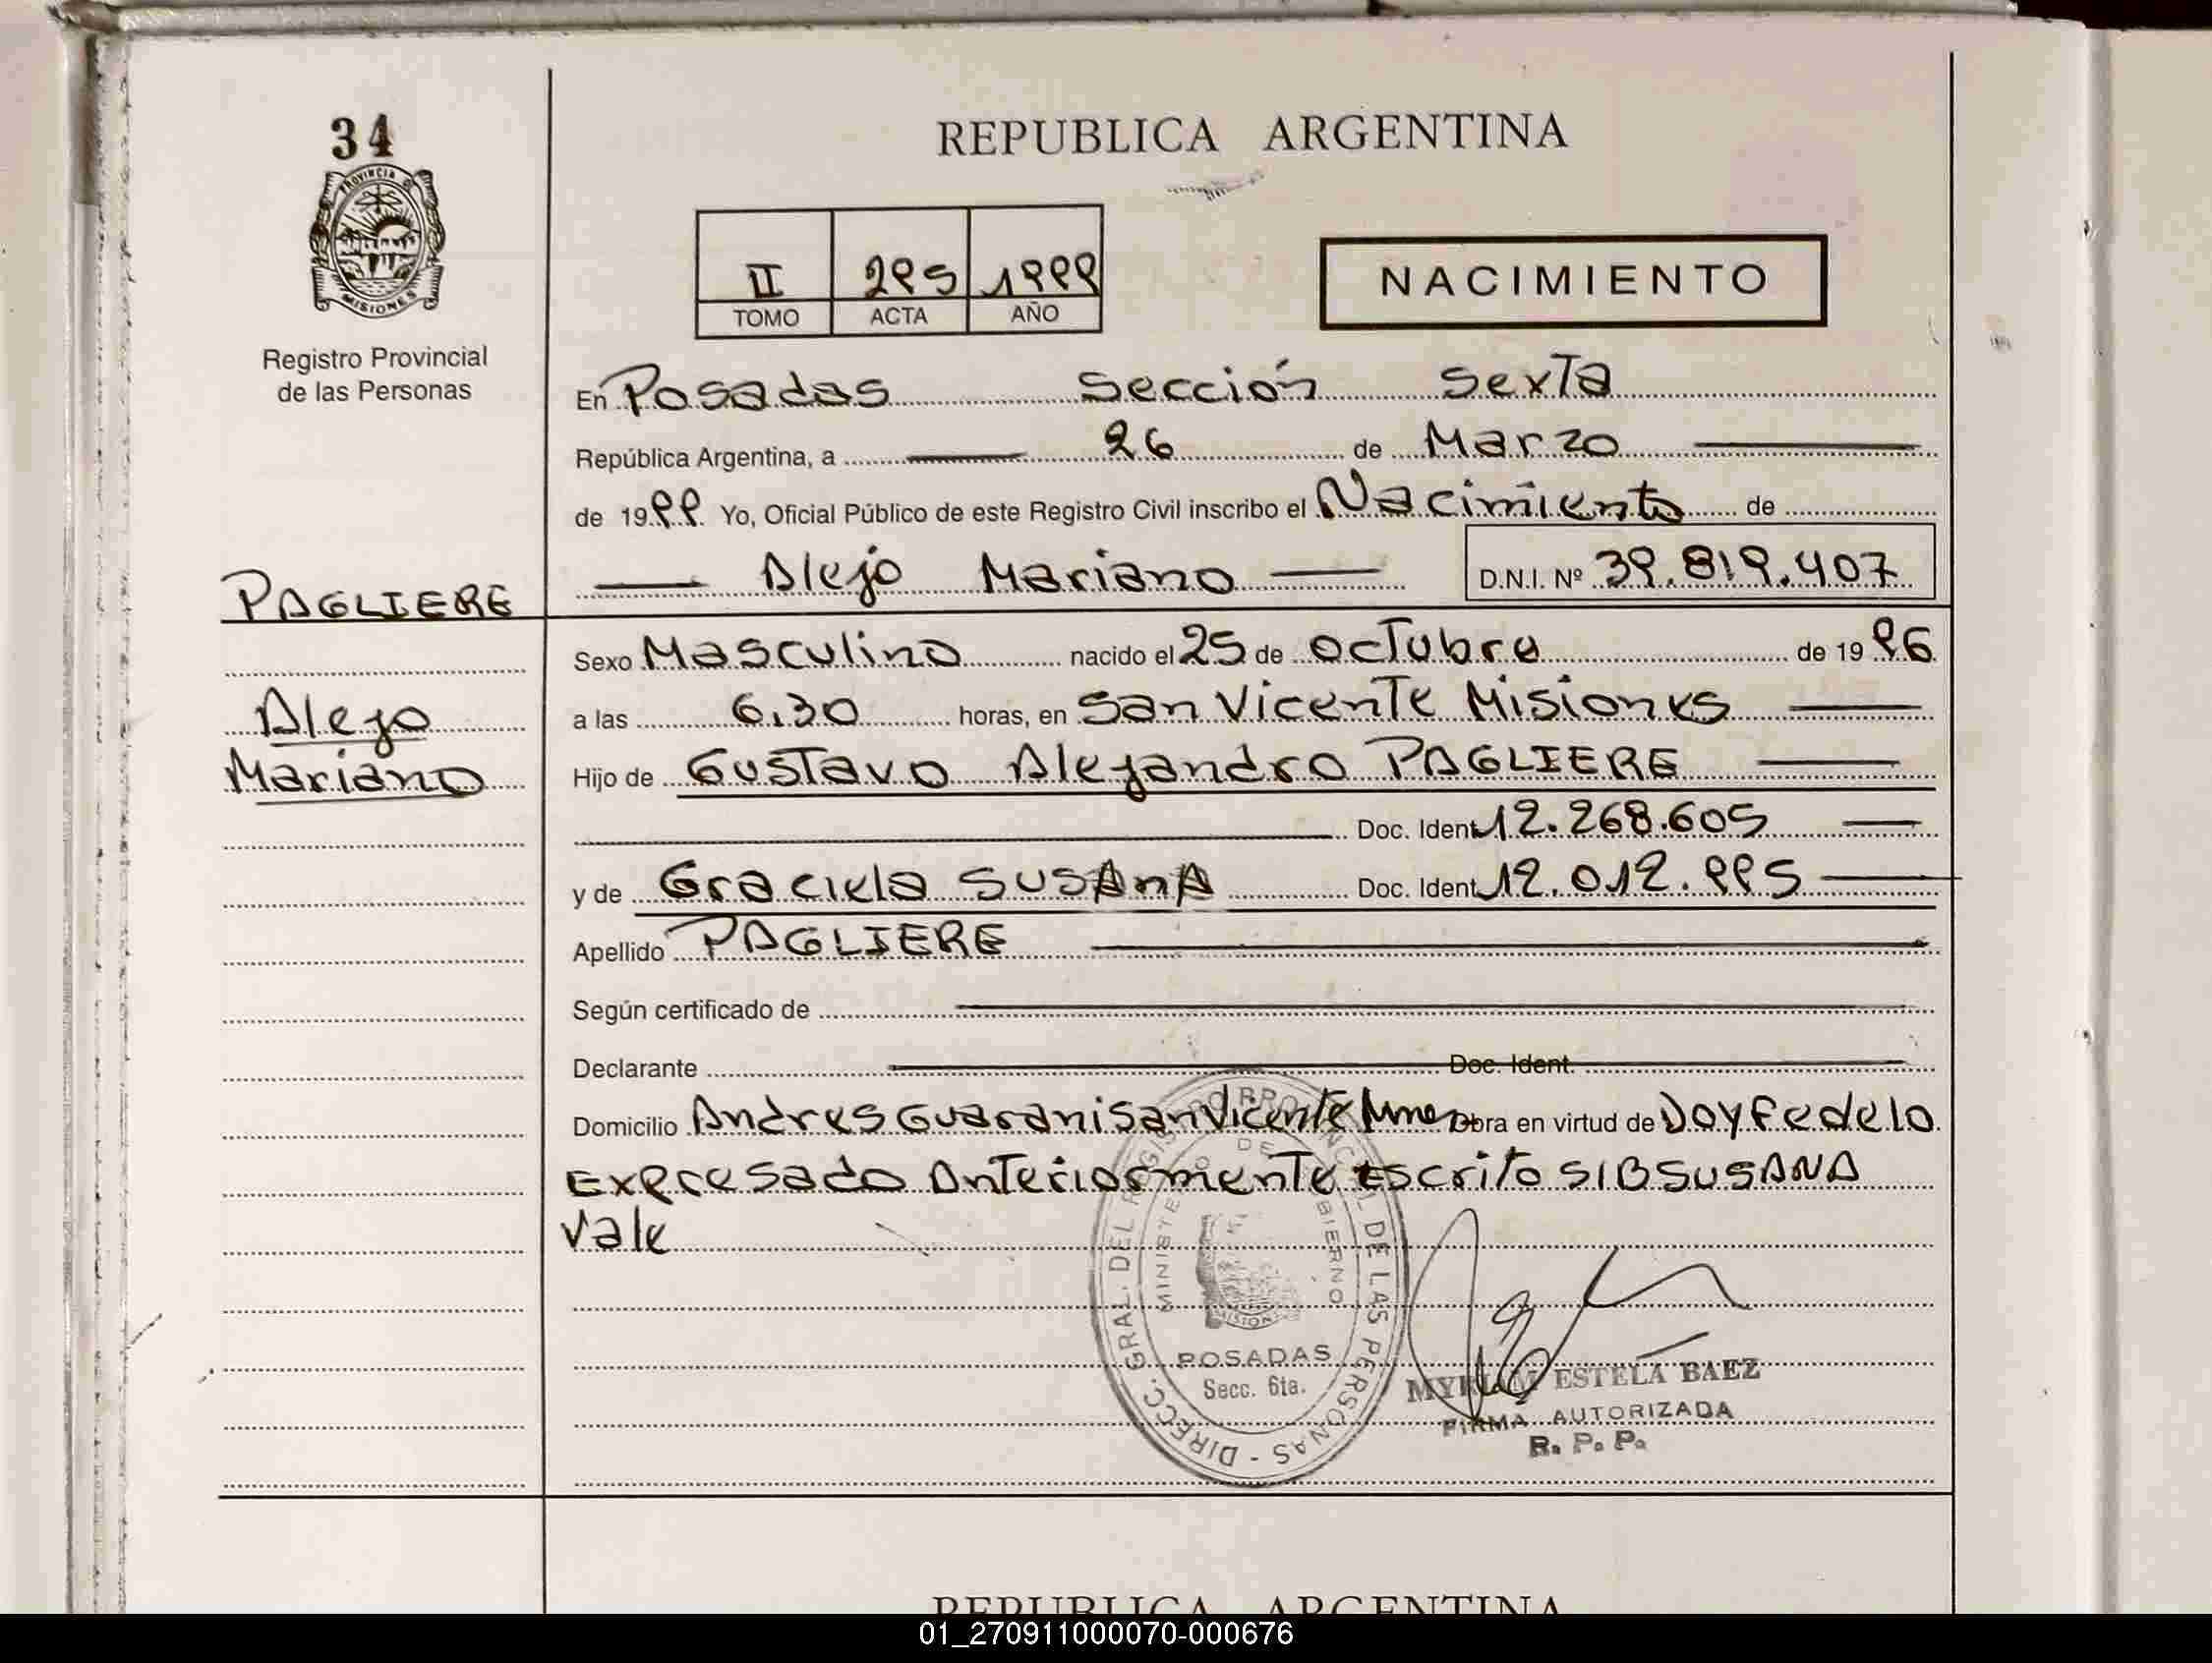 34
PROVINCIA DE
MISIONES
Registro Provincial
de las Personas
REPUBLICA ARGENTINA
II 295 1999
TOMO ACTA AÑO
NACIMIENTO
En Posadas Sección Sexta
República Argentina, a 26 de Marzo
de 1999 Yo, Oficial Público de este Registro Civil inscribo el Nacimiento de
PAGLIERE
Alejo Mariano D.N.I. Nº 39.819.407
Sexo Masculino nacido el 25 de octubre de 1996
Alejo
Mariano
a las 6,30 horas, en San Vicente Misiones
Hijo de Gustavo Alejandro PAGLIERE
Doc. Ident. 12.268.605
y de Graciela SUSAnA Doc. Ident. 12.012.995
Apellido PAGLIERE
Según certificado de
Declarante Doc. Ident.
Domicilio Andres Guasani San Vicente Mnes Obra en virtud de Doy fe de lo
Expresado Anteriormente Escrito S/B SUSANA
Vale
DIRECC. GRAL. DEL REGISTRO PROVINCIAL DE LAS PERSONAS
MINISTERIO DE GOBIERNO
MISIONES
POSADAS
Secc. 6ta.
MYRIAM ESTELA BAEZ
FIRMA AUTORIZADA
R. P. P.
REPUBLICA ARGENTINA
01_270911000070-000676